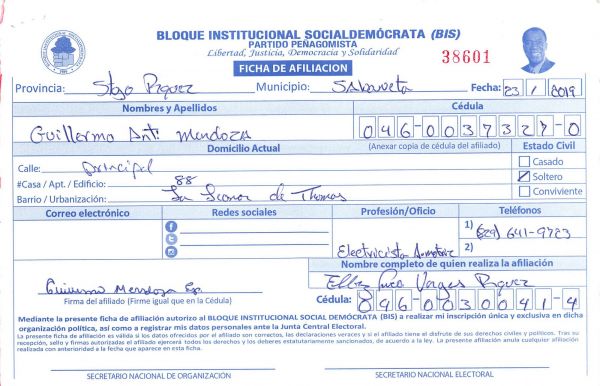 BLOQUE INSTITUCIONAL SOCIALDEMÓCRATA (BIS)
PARTIDO PEÑAGOMISTA
Libertad, Justicia, Democracia y Solidaridad
38601
FICHA DE AFILIACION
Provincia: Stgo Rguez Municipio: Sabaneta Fecha: 23/1/2019
Nombres y Apellidos Cédula
Guillermo Ant. Mendoza 046-0037327-0
Domicilio Actual (Anexar copia de cédula del afiliado) Estado Civil
Calle: principal Casado
#Casa / Apt. / Edificio: 88 Soltero
Barrio / Urbanización: de Thomas Conviviente
Correo electrónico Redes sociales Profesión/Oficio Teléfonos
1) (829) 641-9723
Electricista 2)
Nombre completo de quien realiza la afiliación
Guillermo Mendoza Vargas Rguez
Firma del afiliado (Firme igual que en la Cédula) Cédula: 046-0030041-4
Mediante la presente ficha de afiliación autorizo al BLOQUE INSTITUCIONAL SOCIAL DEMÓCRATA (BIS) a realizar mi inscripción única y exclusiva en dicha
organización política, así como a registrar mis datos personales ante la Junta Central Electoral.
La presente ficha de afiliación es válida si los datos ofrecidos por el afiliado son correctos, las declaraciones veraces y si el afiliado tiene el disfrute de sus derechos civiles y políticos. Tras su
recepción, sello y firmas autorizadas el afiliado ejercerá todos los derechos y los deberes estatutariamente sancionados, de acuerdo a la ley. La presente afiliación anula cualquier afiliación
realizada con anterioridad a la fecha que aparece en esta ficha.
SECRETARIO NACIONAL DE ORGANIZACIÓN SECRETARIO NACIONAL ELECTORAL